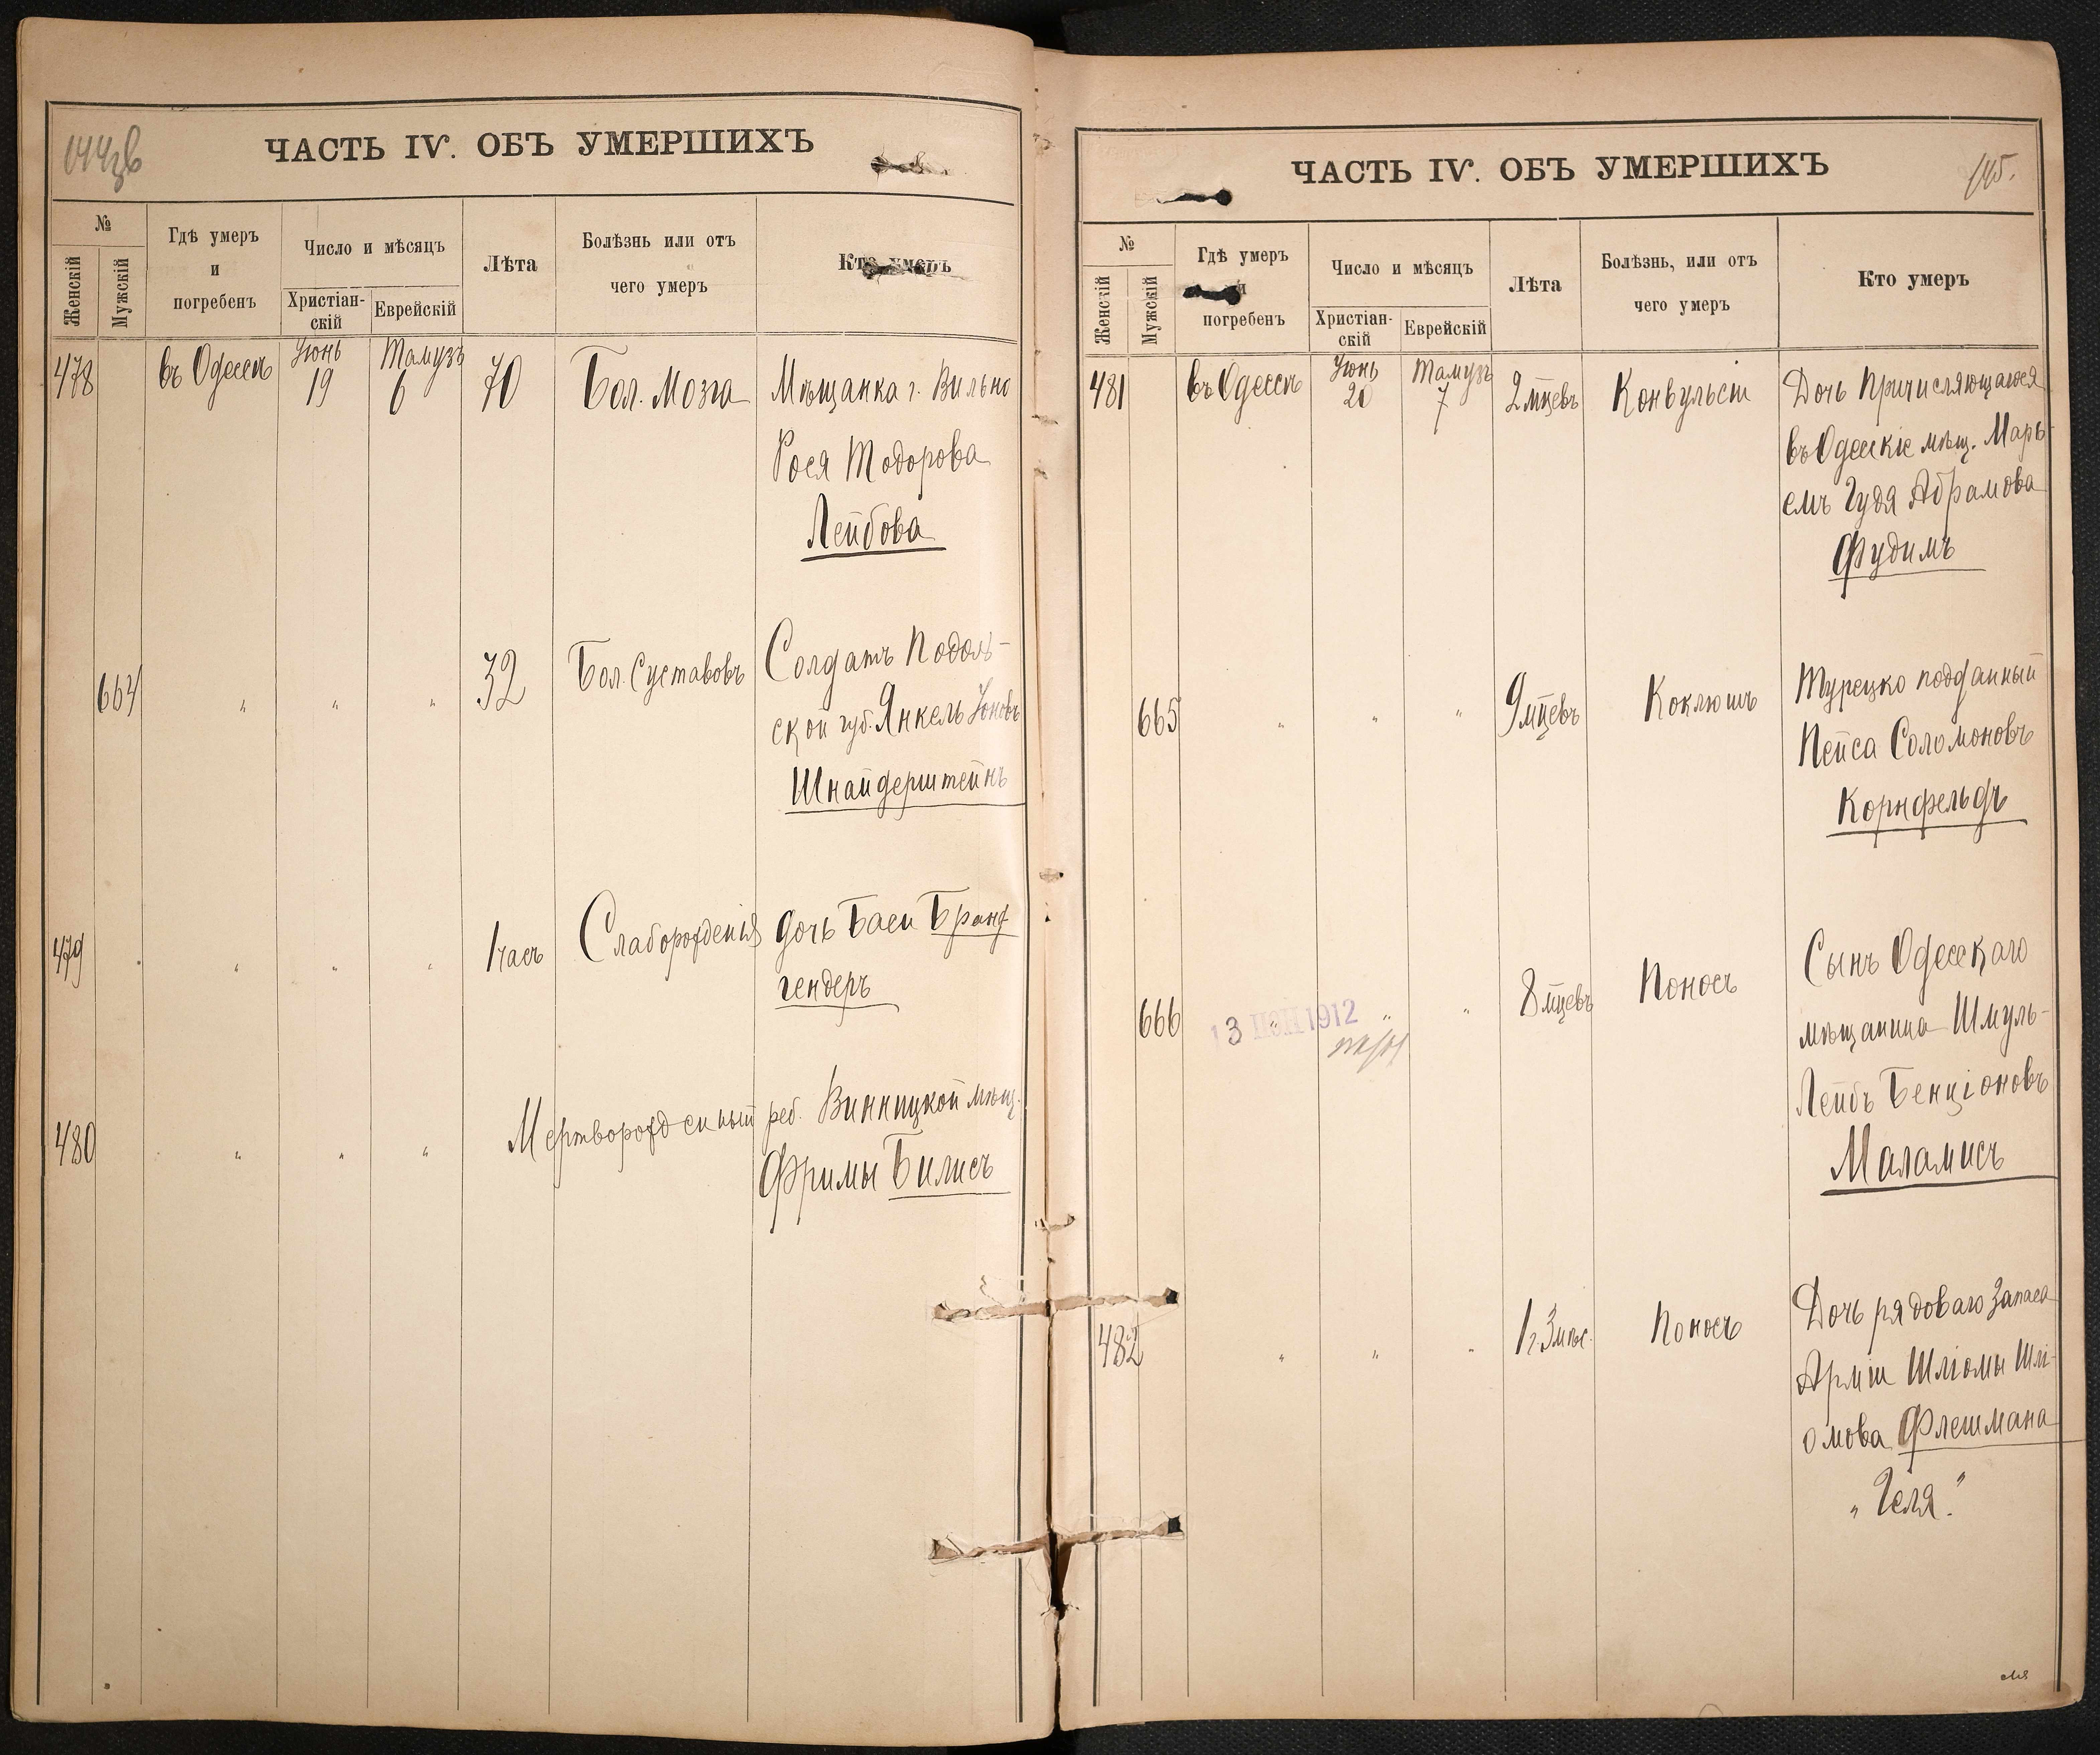 ЧАСТЬ IV. ОБЪ УМЕРШИХЪ
№
Женскій
Мужскій
Гдѣ умеръ
и
погребенъ
Число и мѣсяцъ
Христіан-
скій
Еврейскій
Лѣта
Болѣзнь или отъ
чего умеръ
Кто умеръ
478 въ Одессѣ Іюнь 19 Тамузъ 6 70 Бол. Мозга Мѣщанка г. Вильно
Рося Тодорова
Лейбова
664 " " " 32 Бол. Суставовъ Солдатъ Подоль-
ской губ. Янкель Іоновъ
Шнайдерштейнъ
479 " " " 1 часъ Слаборожденія дочь Баси Бранд
гендеръ
480 " " " Мертворожденный реб. Винницкой мѣщ.
Фримы Билисъ
ЧАСТЬ IV. ОБЪ УМЕРШИХЪ
145.
№
Женскій
Мужскій
Гдѣ умеръ
и
погребенъ
Число и мѣсяцъ
Христіан-
скій
Еврейскій
Лѣта
Болѣзнь, или отъ
чего умеръ
Кто умеръ
481 въ Одессѣ Іюнь 20 Тамузъ 7 2 мѣцевъ Конвульсіи Дочь Причисляющагося
въ Одесскіе мѣщ. Марь-
емъ Гудя Абрамова
Фудимъ
665 " " " 9 мѣцевъ Коклюшъ Турецко подданный
Пейса Соломоновъ
Корнфельдъ
666 " " " 8 мѣцевъ Поносъ Сынъ Одесскаго
мѣщанина Шмуль-
Лейбъ Бенціоновъ
Маламисъ
13 ІЮН 1912
482 " " " 1 г. 3 мѣс. Поносъ Дочь рядоваго Запаса
Арміи Шліомы Шлі-
омова Флешмана
"Геля."